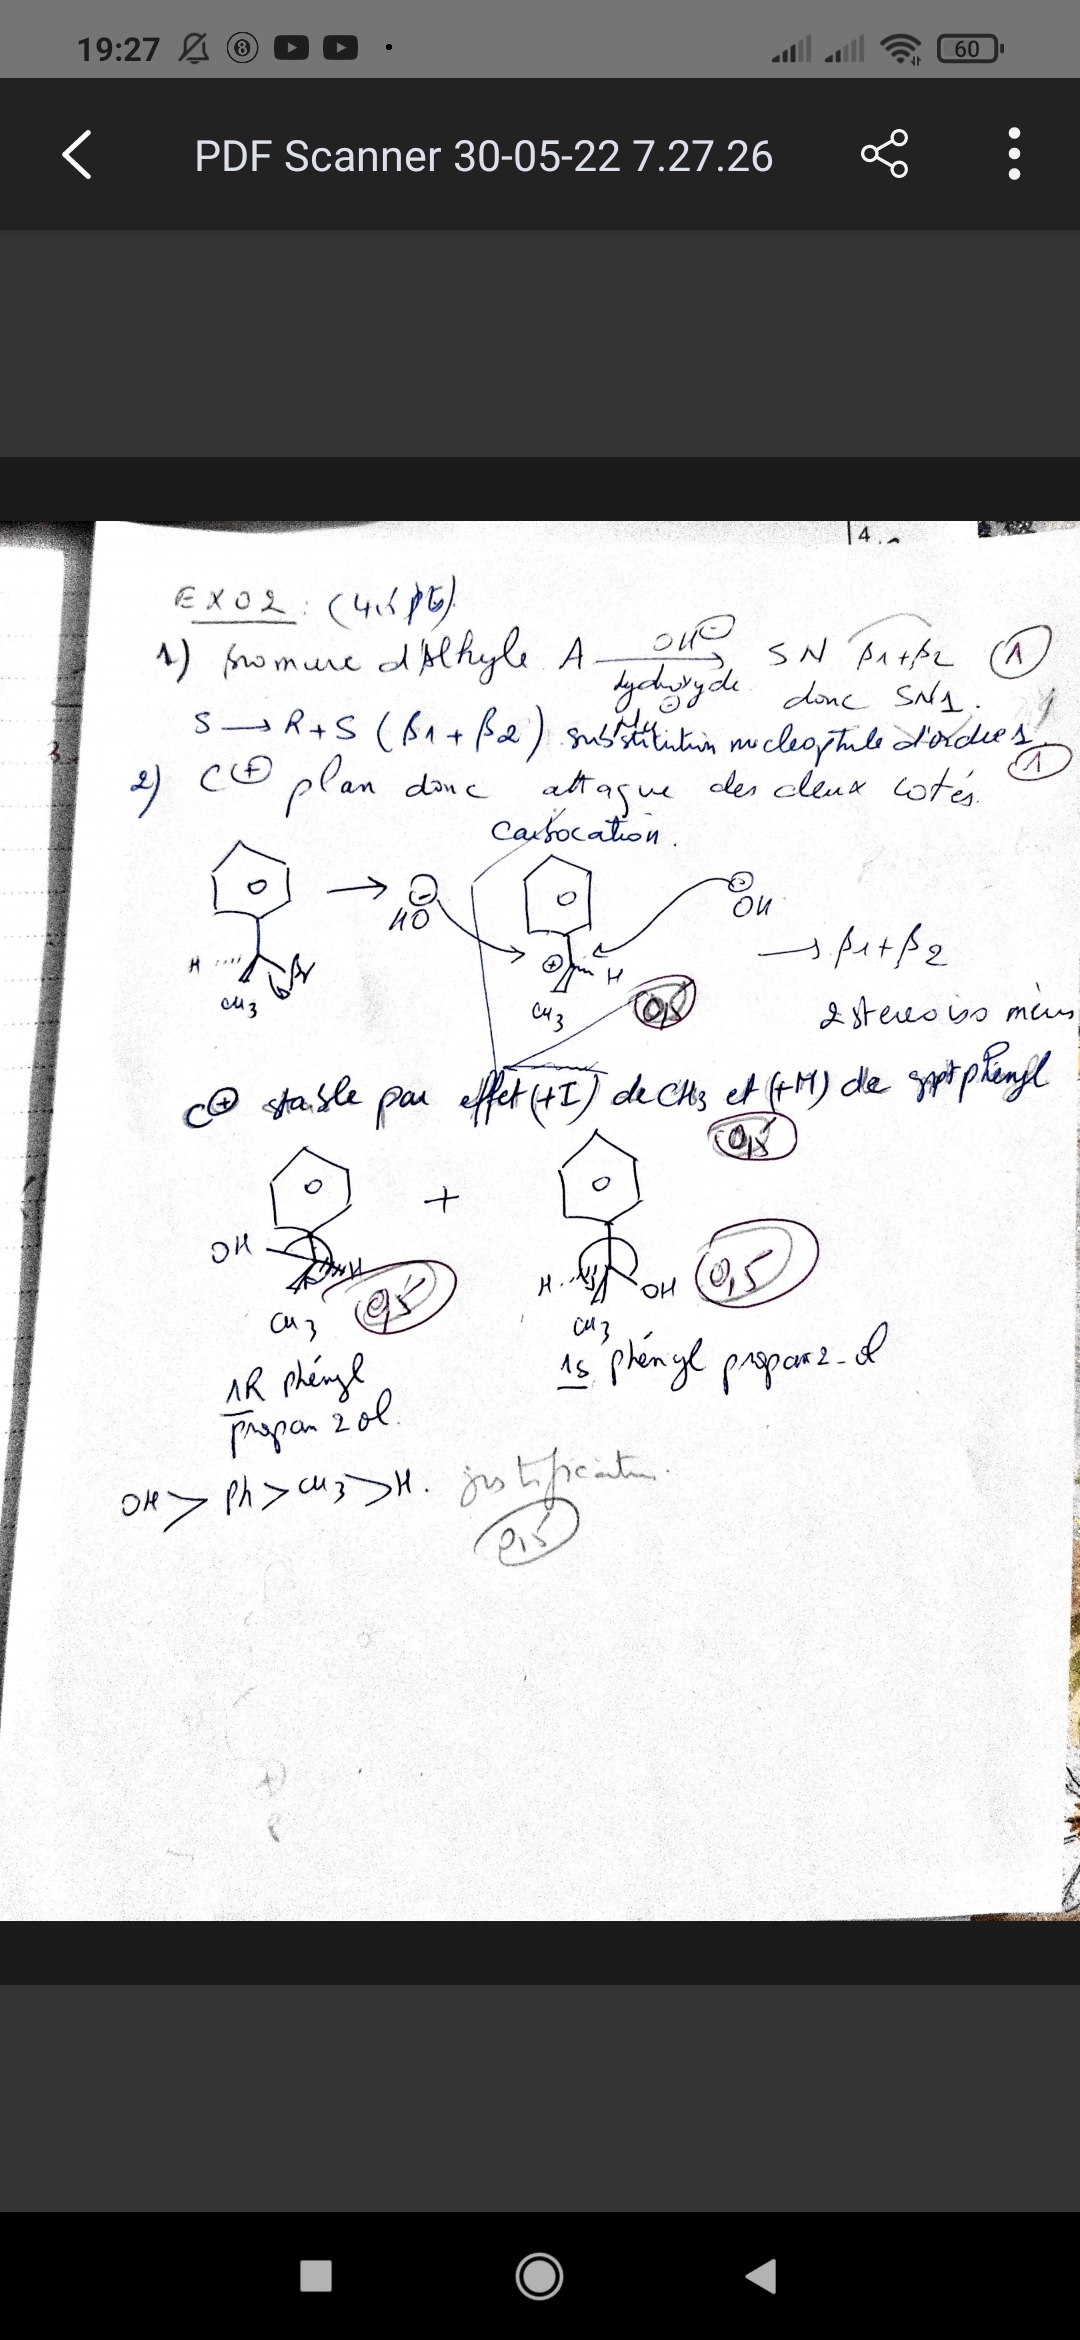 19:27
60
PDF Scanner 30-05-22 7.27.26
4
EXO2 : (4,5 pts).
1) bromure d'Alkyle A OH⊖ SN B1+B2 1
hydroxyde donc SN1.
S → R+S (B1 + B2) substitution nucléophile d'ordre 1
Nu⊖
3.
2) C⊕ plan donc attaque des deux cotés. 1
carbocation.
→ ⊖HO ⊖OH
H Br ⊕ H → B1+B2
CH3 CH3 0,5 2 stereoisomères
C⊕ stable par effet (+I) de CH3 et (+M) de gpt phényl
0,5
+
OH H H OH
CH3 0,5 CH3 0,5
1R phényl propan 2 ol.
1S phényl propan 2-ol
OH > Ph > CH3 > H. justification.
0,5